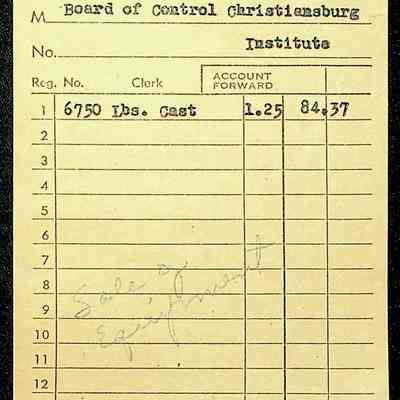 M Board of Control Christiansburg
No. Institute
Reg. No. Clerk ACCOUNT FORWARD
1 6750 Lbs. Cast 1.25 84.37
2
3
4
5
6
7
8 Sale of
9 Equipment
10
11
12